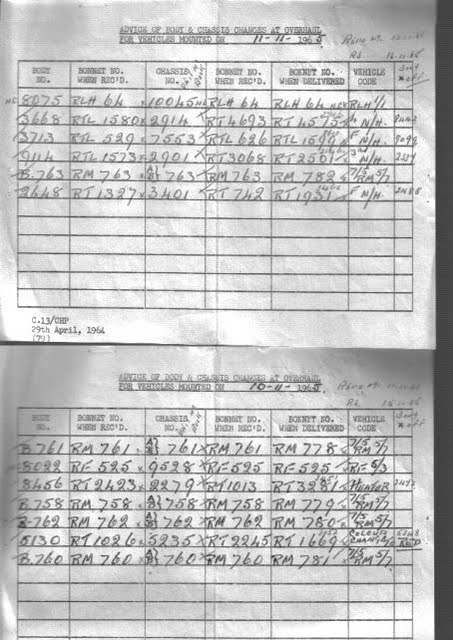 ADVICE OF BODY & CHASSIS CHANGES AT OVERHAUL
FOR VEHICLES MOUNTED ON 11-11-1965
BODY NO. BONNET NO. WHEN REC'D. CHASSIS NO. BONNET NO. WHEN REC'D. BONNET NO. WHEN DELIVERED VEHICLE CODE Body off
8075 RLH 64 10045 RLH 64 RLH 64 RLH 1/1
3668 RTL 1580 2914 RT 4693 RT 4575 N/H
3713 RTL 529 7553 RTL 626 RTL 1599 N/H
9114 RTL 1573 2901 RT 3068 RT 2501 N/H
B.763 RM 763 A} B} 763 RM 763 RM 782 7/5 5/7 RM
2648 RT 1327 3401 RT 742 RT 1931 F N/H
C.13/CHP
29th April, 1964
(79)
ADVICE OF BODY & CHASSIS CHANGES AT OVERHAUL
FOR VEHICLES MOUNTED ON 10-11-1965
BODY NO. BONNET NO. WHEN REC'D. CHASSIS NO. BONNET NO. WHEN REC'D. BONNET NO. WHEN DELIVERED VEHICLE CODE Body off
B.761 RM 761 A} B} 761 RM 761 RM 778 7/5 5/7 RM
8022 RF 525 9528 RF 525 RF 525 RF 5/3
8456 RT 2423 2279 RT 1013 RT 3281 HEATER
B.758 RM 758 A} B} 758 RM 758 RM 779 7/5 5/7 RM
B.762 RM 762 A} B} 762 RM 762 RM 780 7/5 5/7 RM
5130 RT 1026 5235 RT 2245 RT 1669 COLOUR CHANGE
B.760 RM 760 A} B} 760 RM 760 RM 781 7/5 5/7 RM